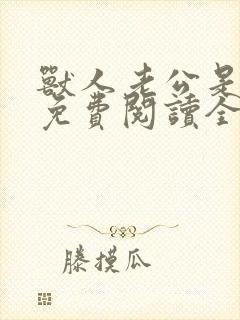 獸人老公是
免費閱讀全
滕摸瓜